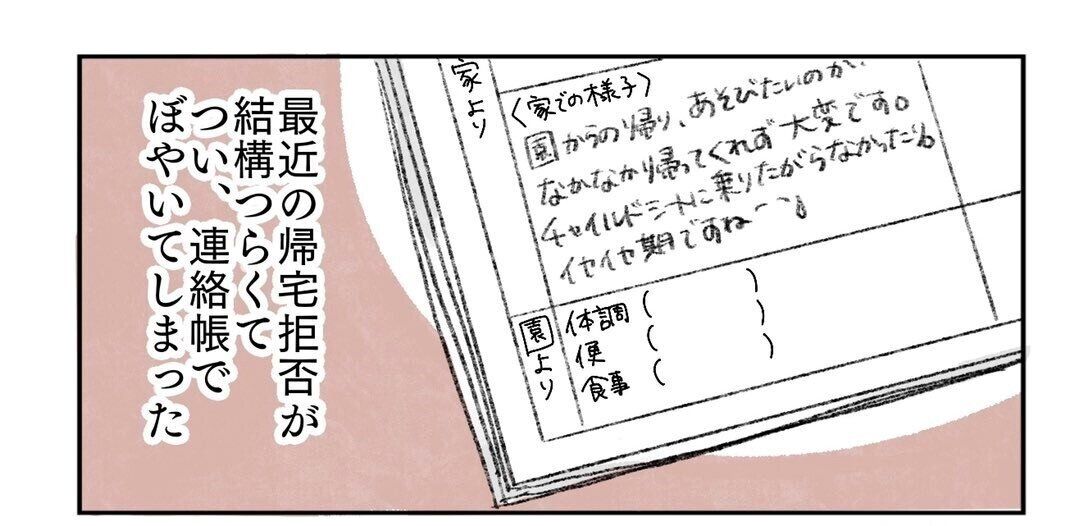 最近の帰宅拒否が
結構つらくて
つい、連絡帳で
ぼやいてしまった
家より
〈家での様子〉
園からの帰り、あそびたいのか、
なかなか帰ってくれず大変です。
チャイルドシートに乗りたがらなかったり。
イヤイヤ期ですね
園より
体調（　　）
便　（　　）
食事（　　）